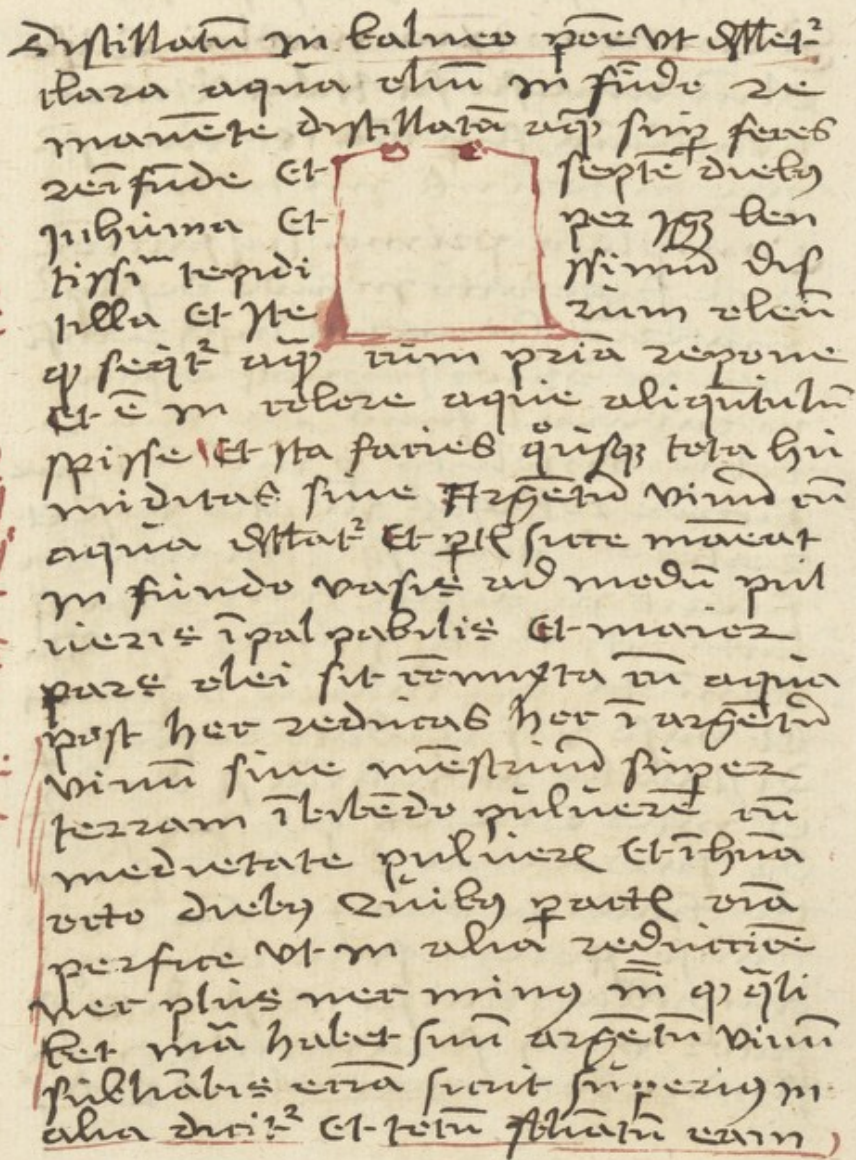 Distillatū in balneo pōe vt dſtlletᷣ
clara aqua oleū in fūdo re
manēte distillatā aqͣ̄ sup̱ feces
rei fūde Et septē diebꝰ
inhuma Et per igē len
tissiᵐ tepidi ssimū dis
tilla Et ite rum oleū
qͥ seqͥtᷣ aqͣ̄ cum p̄ria repone
Et ē in colore aque aliqͣntulū
spisse Et ita facies qͦusqꝫ tota hu
miditas siue Argētū viuū cū
aqua dſtllatᷣ Et ꝑtes sicce maneāt
in fundo vasis ad modū pul
ueris īpalpabilis Et maior
pars olei sit cōmixta cū aqua
post hec reducas hoc ī argētū
viuū siue mēstruū super
terram ībibēdo puluerē cū
medietate pulueris Et īhūa
octo diebꝰ Quibꝰ ꝑactis oīa
perfice vt in alia reducciōe
nec plus nec minꝰ m̄ qͥ qͣli
bet mā habet suū argētū viuū
sublīabis eciā sicut superiꝰ in
alia dicitᷣ Et totū sblīatū eam